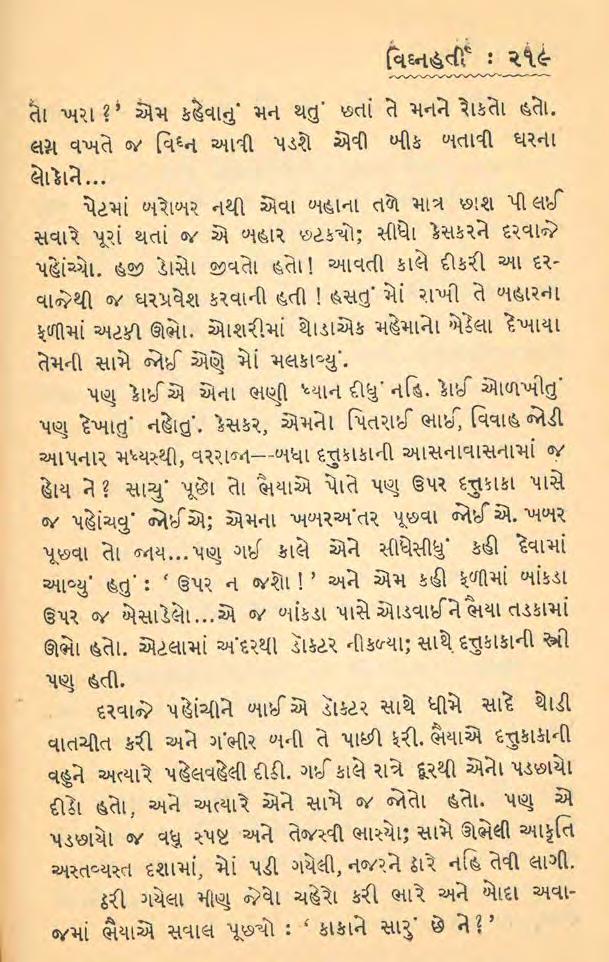 વિઘ્નહર્તા : ૨૧૯
તો ખરા ?’ એમ કહેવાનું મન થતું છતાં તે મનને રોકતો હતો.
લગ્ન વખતે જ વિઘ્ન આવી પડશે એવી બીક બતાવી ઘરના
લોકોને...
પેટમાં બરોબર નથી એવા બહાના તળે માત્ર છાશ પી લઈ
સવારે પૂરાં થતાં જ એ બહાર છટક્યો; સીધો કેસકરને દરવાજે
પહોંચ્યો. હજી ડોસો જીવતો હતો! આવતી કાલે દીકરી આ દર-
વાજેથી જ ઘરપ્રવેશ કરવાની હતી ! હસતું મોં રાખી તે બહારના
ફળીમાં અટકી ઊભો. ઓશરીમાં થોડાએક મહેમાનો બેઠેલા દેખાયા
તેમની સામે જોઈ એણે મોં મલકાવ્યું.
પણ કોઈએ એના ભણી ધ્યાન દીધું નહિ. કોઈ ઓળખીતું
પણ દેખાતું નહોતું. કેસકર, એમનો પિતરાઈ ભાઈ, વિવાહ જોડી
આપનાર મધ્યસ્થી, વરરાજા---બધા દત્તુકાકાની આસનાવાસનામાં જ
હોય ને ? સાચું પૂછો તો ભૈયાએ પોતે પણ ઉપર દત્તુકાકા પાસે
જ પહોંચવું જોઈએ; એમના ખબરઅંતર પૂછવા જોઈએ. ખબર
પૂછવા તો જાય...પણ ગઈ કાલે એને સીધેસીધું કહી દેવામાં
આવ્યું હતું : ‘ ઉપર ન જશો !’ અને એમ કહી ફળીમાં બાંકડા
ઉપર જ બેસાડેલો...એ જ બાંકડા પાસે ઓડવાઈને ભૈયા તડકામાં
ઊભો હતો. એટલામાં અંદરથી ડૉકટર નીકળ્યા; સાથે દત્તુકાકાની સ્ત્રી
પણ હતી.
દરવાજે પહોંચીને બાઈએ ડૉકટર સાથે ધીમે સાદે થોડી
વાતચીત કરી અને ગંભીર બની તે પાછી ફરી. ભૈયાએ દત્તુકાકાની
વહુને અત્યારે પહેલવહેલી દીઠી. ગઈ કાલે રાત્રે દૂરથી એનો પડછાયો
દીઠો હતો, અને અત્યારે એને સામે જ જોતો હતો. પણ એ
પડછાયો જ વધુ સ્પષ્ટ અને તેજસ્વી ભાસ્યો; સામે ઊભેલી આકૃતિ
અસ્તવ્યસ્ત દશામાં, મોં પડી ગયેલી, નજરને ઠારે નહિ તેવી લાગી.
ઠરી ગયેલા મીણ જેવો ચહેરો કરી ભારે અને ખોદા અવા-
જમાં ભૈયાએ સવાલ પૂછ્યો : ‘ કાકાને સારું છે ને ?’